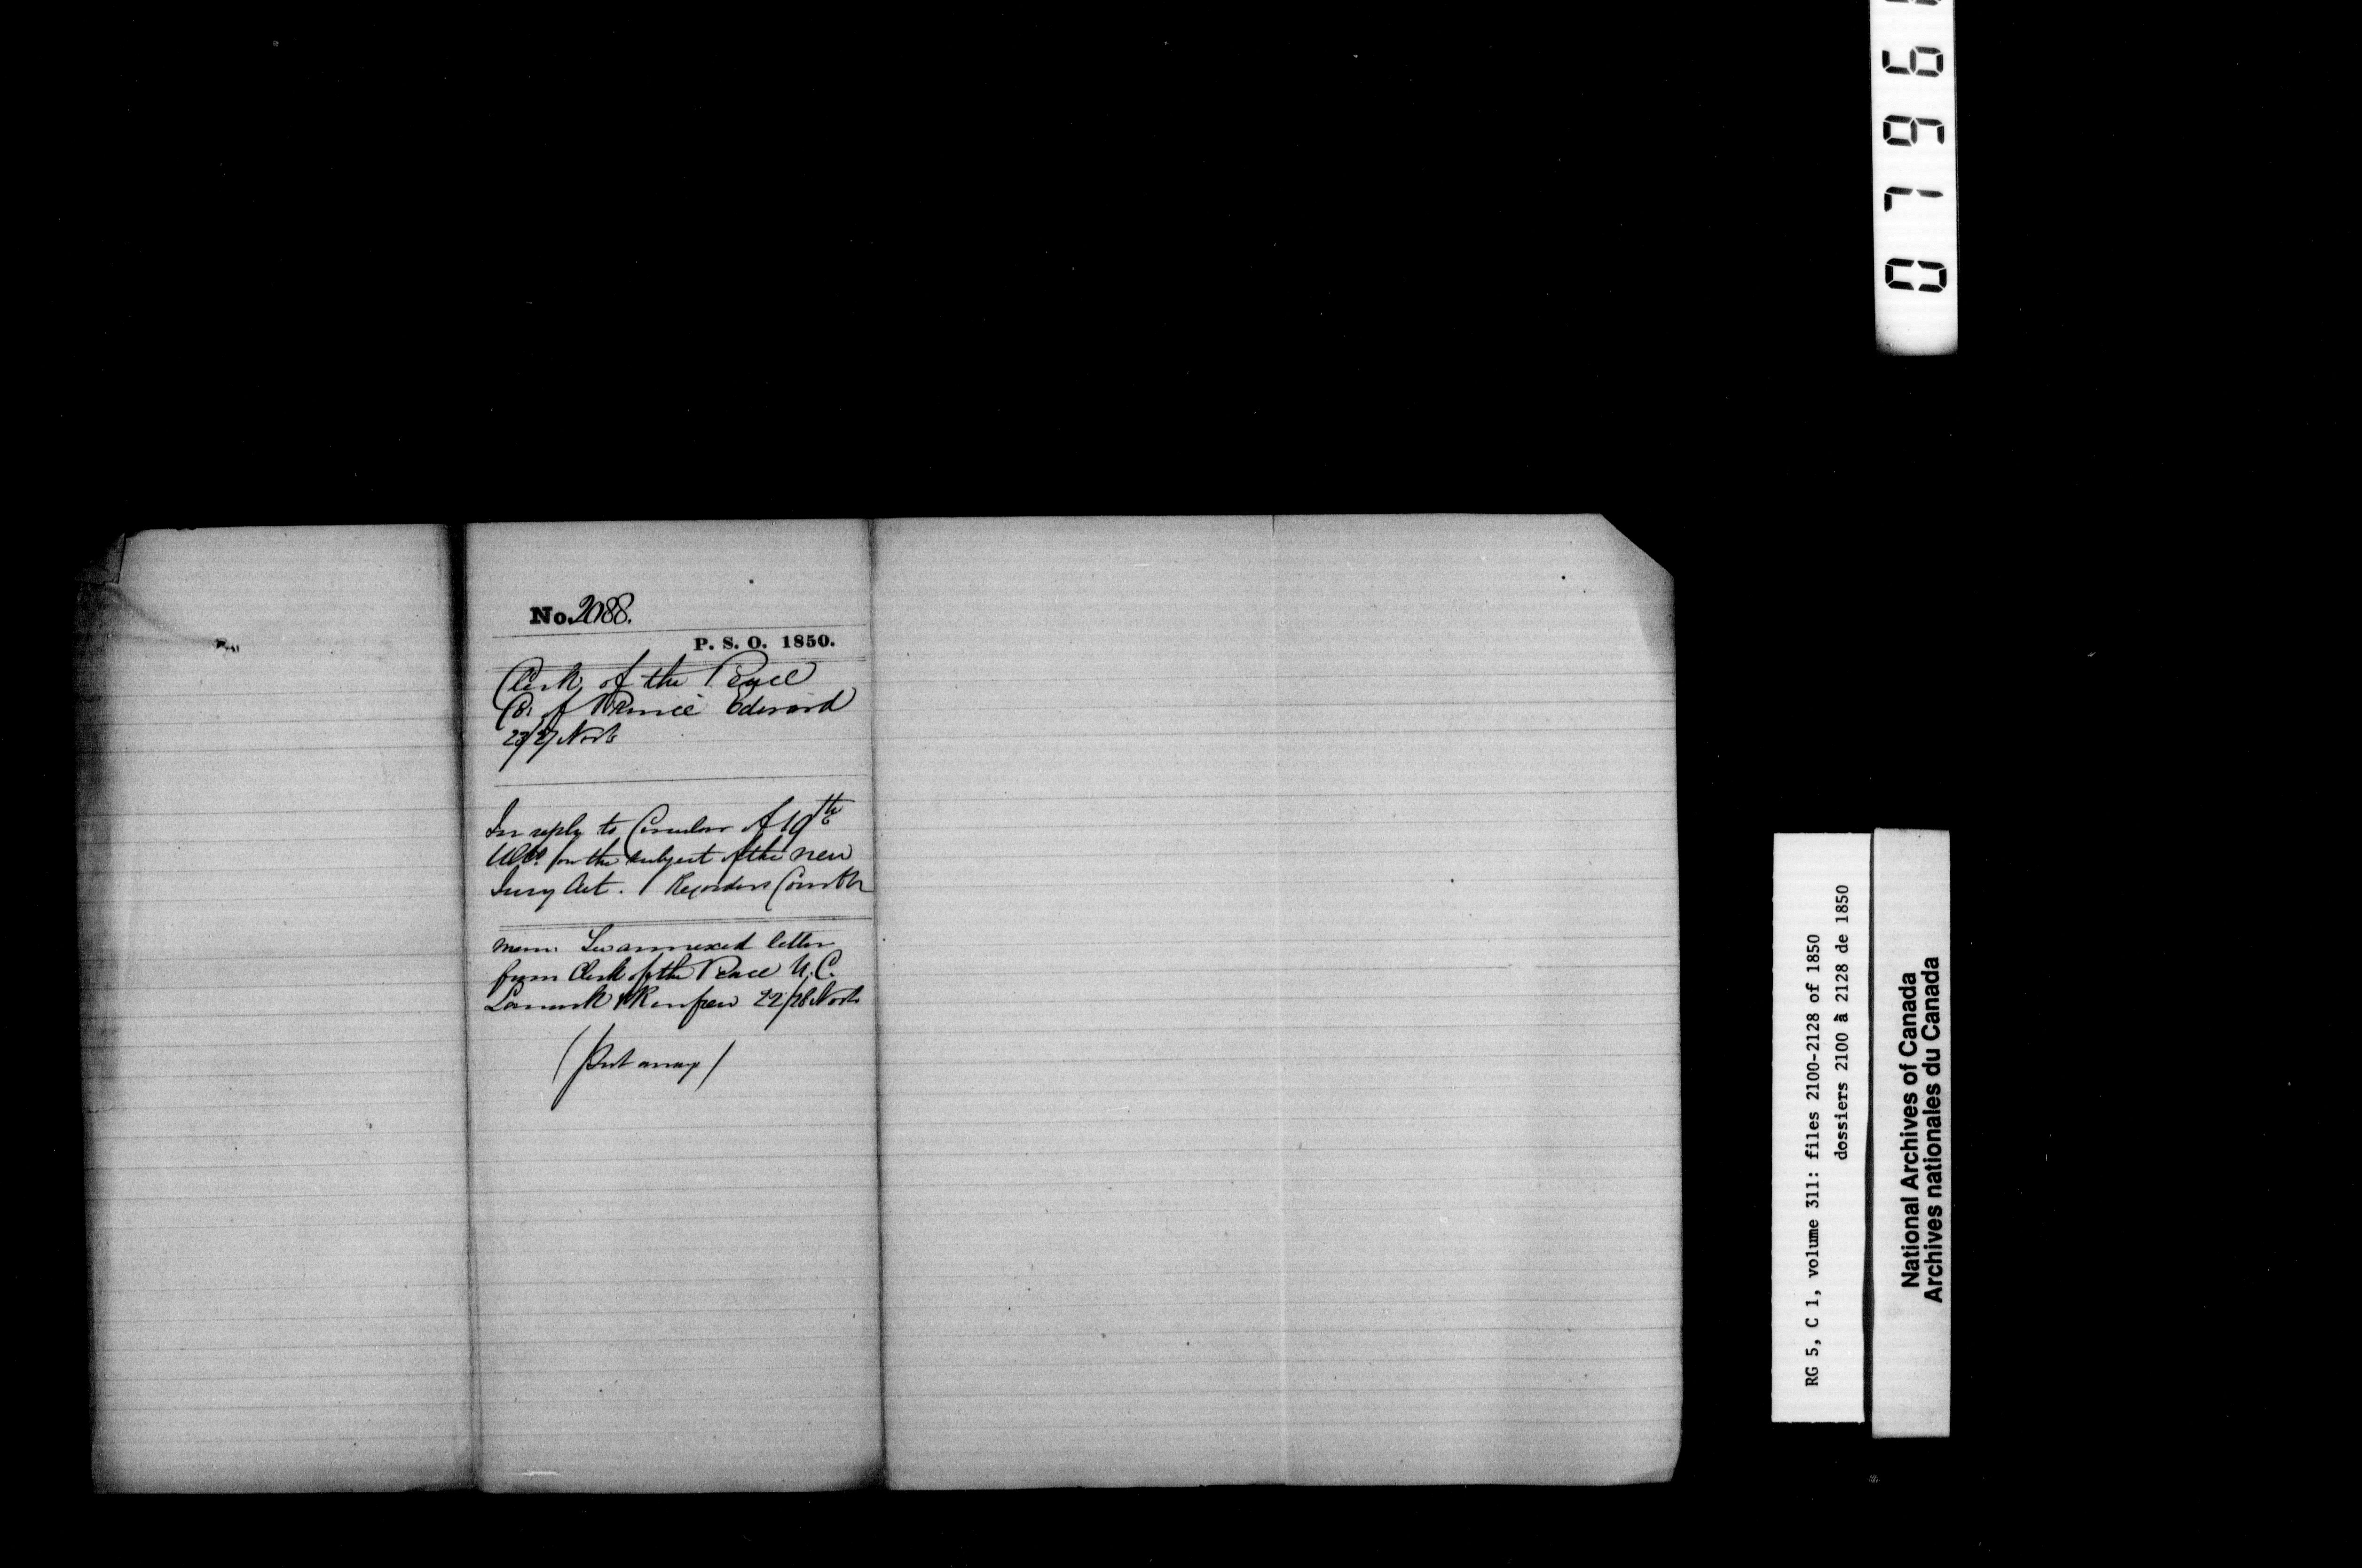 No. 2088.
P. S. O. 1850.
Clerk of the Peace
Co. of Prince Edward
23/27 Novr
In reply to Circular of 19th
Ulto. on the subject of the new
Jury Act. Recorders Court
Mem. See annexed letter
from Clerk of the Peace U.C.
Lanark & Renfrew 22/28 Novr
(Put away)
RG 5, C 1, volume 311: files 2100-2128 of 1850
dossiers 2100 à 2128 de 1850
National Archives of Canada
Archives nationales du Canada